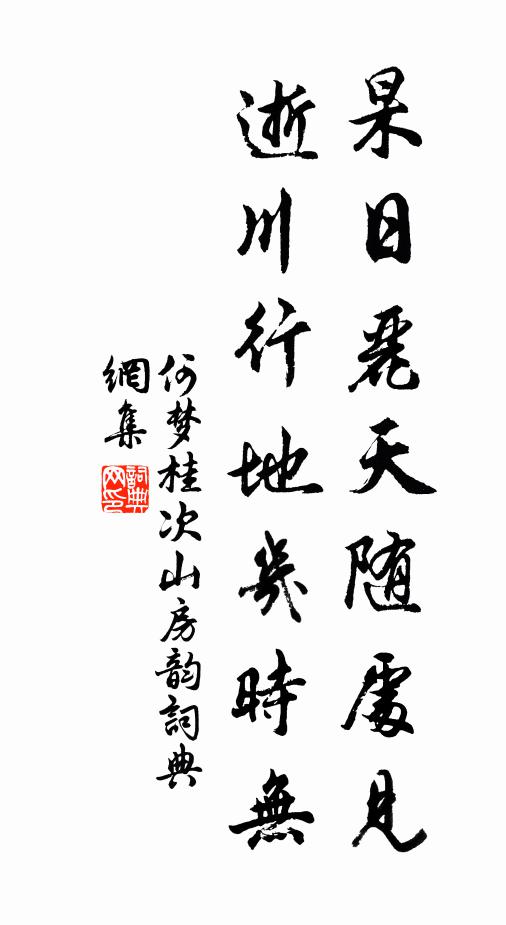 杲日麗天随處見
逝川行地幾時無
何梦桂次山房韵詞典
網集
詞典
网印